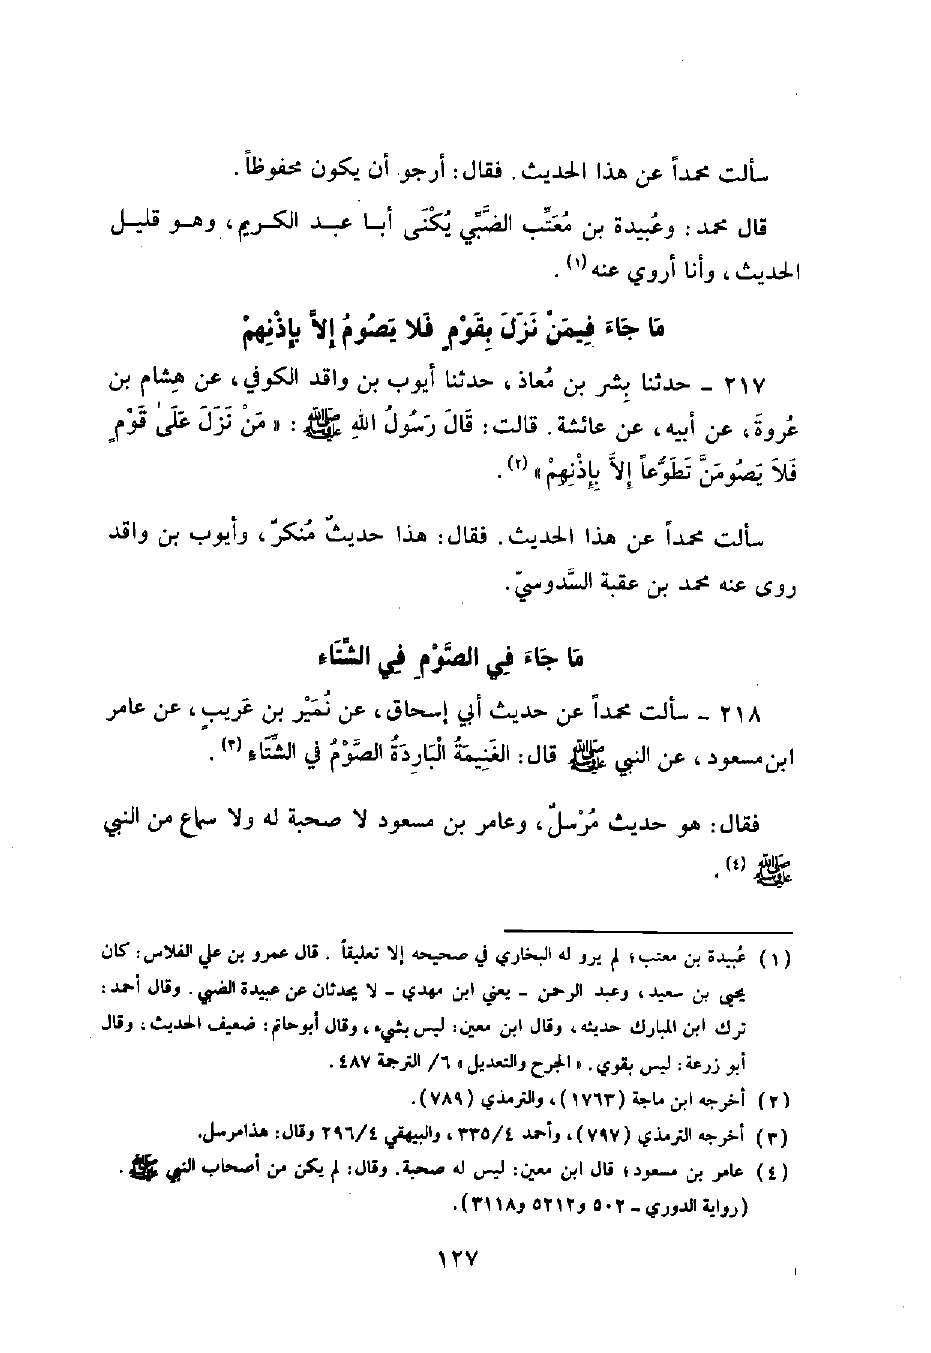 سألت محمداً عن هذا الحديث. فقال: أرجو أن يكون محفوظاً.
قال محمد: وعُبيدة بن مُعَتِّب الضَّبِّي يُكْنَى أبا عبد الكريم، وهو قليل
الحديث، وأنا أروي عنه(١).
مَا جَاءَ فِيمَنْ نَزَلَ بِقَوْمٍ فَلا يَصُومُ إلاَّ بِإِذْنِهِمْ
٢١٧ - حدثنا بِشر بن مُعاذ، حدثنا أيوب بن واقد الكوفي، عن هِشام بن
عُروةَ، عن أبيه، عن عائشة. قالت: قَالَ رَسُولُ اللهِ ﷺ: «مَنْ نَزَلَ عَلَىٰ قَوْمٍ
فَلاَ يَصُومَنَّ تَطَوُّعاً إِلاَّ بِإِذْنِهِمْ»(٢).
سألت محمداً عن هذا الحديث. فقال: هذا حديثٌ مُنكرٌ، وأيوب بن واقد
روى عنه محمد بن عقبة السَّدوسيّ.
مَا جَاءَ فِي الصَّوْمِ فِي الشِّتَاء
٢١٨ - سألت محمداً عن حديث أبي إسحاق، عن نُمَيْر بن عَريبٍ، عن عامر
ابن مسعود، عن النبي ﷺ قال: الغَنِيمَةُ الْبَارِدَةُ الصَّوْمُ فِي الشِّتَاء(٣).
فقال: هو حديث مُرْسلٌ، وعامر بن مسعود لا صحبة له ولا سماع من النبي
ﷺ(٤).
(١) عُبيدة بن معتب؛ لم يرو له البخاري في صحيحه إلا تعليقاً. قال عمرو بن علي الفلاس: كان
يحيى بن سعيد، وعبد الرحمن - يعني ابن مهدي - لا يحدثان عن عبيدة الضبي. وقال أحمد:
ترك ابن المبارك حديثه، وقال ابن معين: ليس بشيء، وقال أبو حاتم: ضعيف الحديث؛ وقال
أبو زرعة: ليس بقوي. «الجرح والتعديل» ٦/ الترجمة ٤٨٧.
(٢) أخرجه ابن ماجة (١٧٦٣)، والترمذي (٧٨٩).
(٣) أخرجه الترمذي (٧٩٧)، وأحمد ٣٣٥/٤، والبيهقي ٢٩٦/٤ وقال: هذا مرسل.
(٤) عامر بن مسعود؛ قال ابن معين: ليس له صحبة. وقال: لم يكن من أصحاب النبي ﷺ.
(رواية الدوري - ٥٠٢ و٥٢١٢ و٣١١٨).
١٢٧